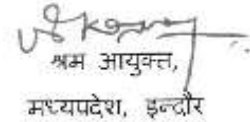 श्रम आयुक्त,
मध्यप्रदेश, इन्दौर